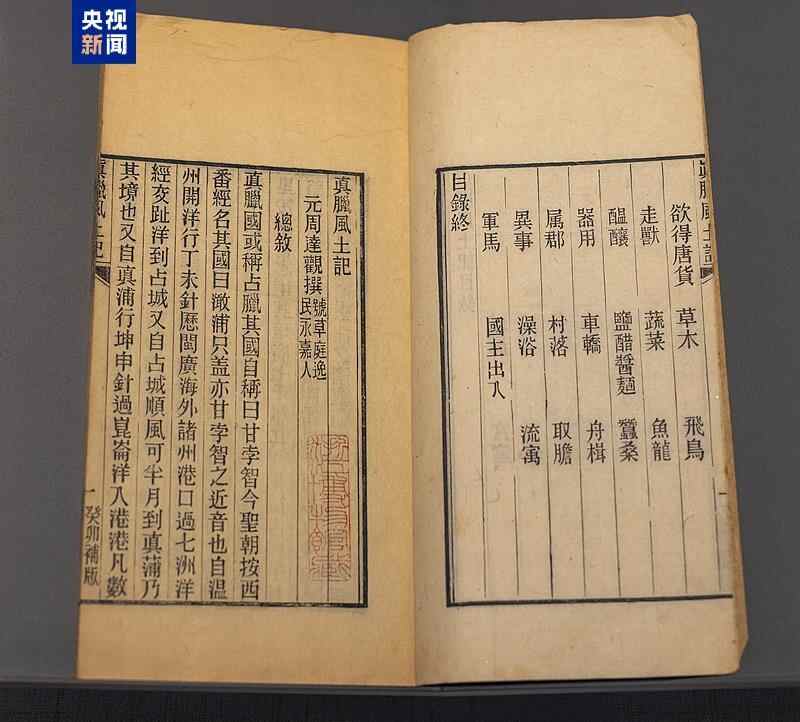 央视
新闻
眞臘風土記
欲得唐貨 草木 飛鳥
走獸 蔬菜 魚龍
醞釀 鹽醋醬麵 蠶桑
器用 車轎 舟楫
属郡 村落 取膽
異事 澡浴 流寓
軍馬 國主出入
目錄終
眞臘風土記
元周達觀撰 號草庭逸
民永嘉人
總敘
眞臘國或稱占臘其國自稱曰甘孛智今聖朝按西
番經名其國曰澉浦只盖亦甘孛智之近音也自温
州開洋行丁未針歷閩廣海外諸州港口過七洲洋
經交趾洋到占城又自占城順風可半月到眞蒲乃
其境也又自眞浦行坤申針過崑崙洋入港港凡數
眞臘風土記 一 癸卯補版